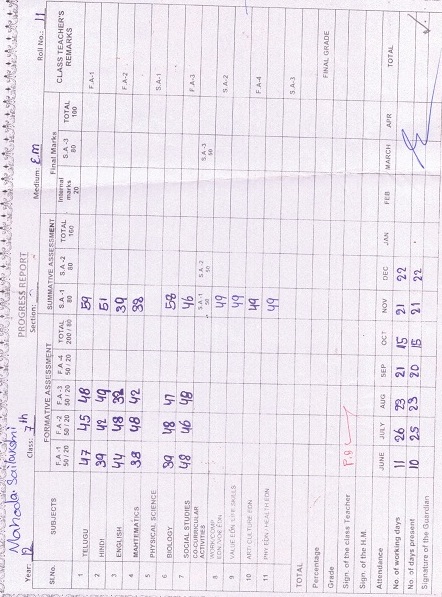 PROGRESS REPORT
Year: 12 Class: 7th Section: Medium: E.M Roll No.: 11
Sl.No. SUBJECTS FORMATIVE ASSESSMENT SUMMATIVE ASSESSMENT Final Marks CLASS TEACHER'S REMARKS
F.A -1 50 / 20 F.A -2 50 / 20 F.A -3 50 / 20 F.A -4 50 / 20 TOTAL 200 / 80 S.A -1 80 S.A -2 80 TOTAL 160 Internal marks 20 S.A -3 80 TOTAL 100
1 TELUGU 47 45 48 59 F.A-1
2 HINDI 39 42 49 51
3 ENGLISH 44 48 39 F.A-2
4 MAHTEMATICS 38 48 42 38
5 PHYSICAL SCIENCE S.A-1
6 BIOLOGY 39 48 47 58
7 SOCIAL STUDIES 48 46 48 46 F.A-3
CO-CURRICULAR ACTIVITIES S.A -1 50 S.A -2 50 S.A -3 50
8 49 S.A-2
9 VALUE EDN. LIFE SKILLS 49
10 ART/ CULTURE EDN 49 F.A-4
11 PHY.EDN / HEALTH EDN 49
TOTAL S.A-3
Percentage
Grade FINAL GRADE
Sign. of the class Teacher
Sign. of the H.M.
Attendance JUNE JULY AUG SEP OCT NOV DEC JAN FEB MARCH APR TOTAL
No. of working days 11 26 23 21 15 21 22
No. of days present 10 25 23 20 15 21 22
Signature of the Guardian